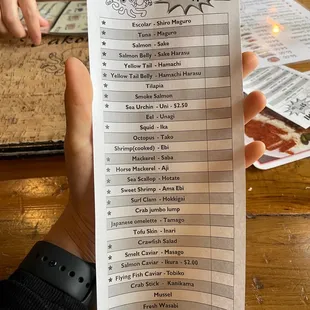 Escolar - Shiro Maguro
Tuna - Maguro
Salmon - Sake
Salmon Belly - Sake Harasu
Yellow Tail - Hamachi
Yellow Tail Belly - Hamachi Harasu
Tilapia
Smoke Salmon
Sea Urchin - Uni - $2.50
Eel - Unagi
Squid - Ika
Octopus - Tako
Shrimp(cooked) - Ebi
Mackerel - Saba
Horse Mackerel - Aji
Sea Scallop - Hotate
Sweet Shrimp - Ama Ebi
Surf Clam - Hokkigai
Crab jumbo lump
Japanese omelette - Tamago
Tofu Skin - Inari
Crawfish Salad
Smelt Caviar - Masago
Salmon Caviar - Ikura - $2.00
Flying Fish Caviar - Tobiko
Crab Stick - Kanikama
Mussel
Fresh Wasabi